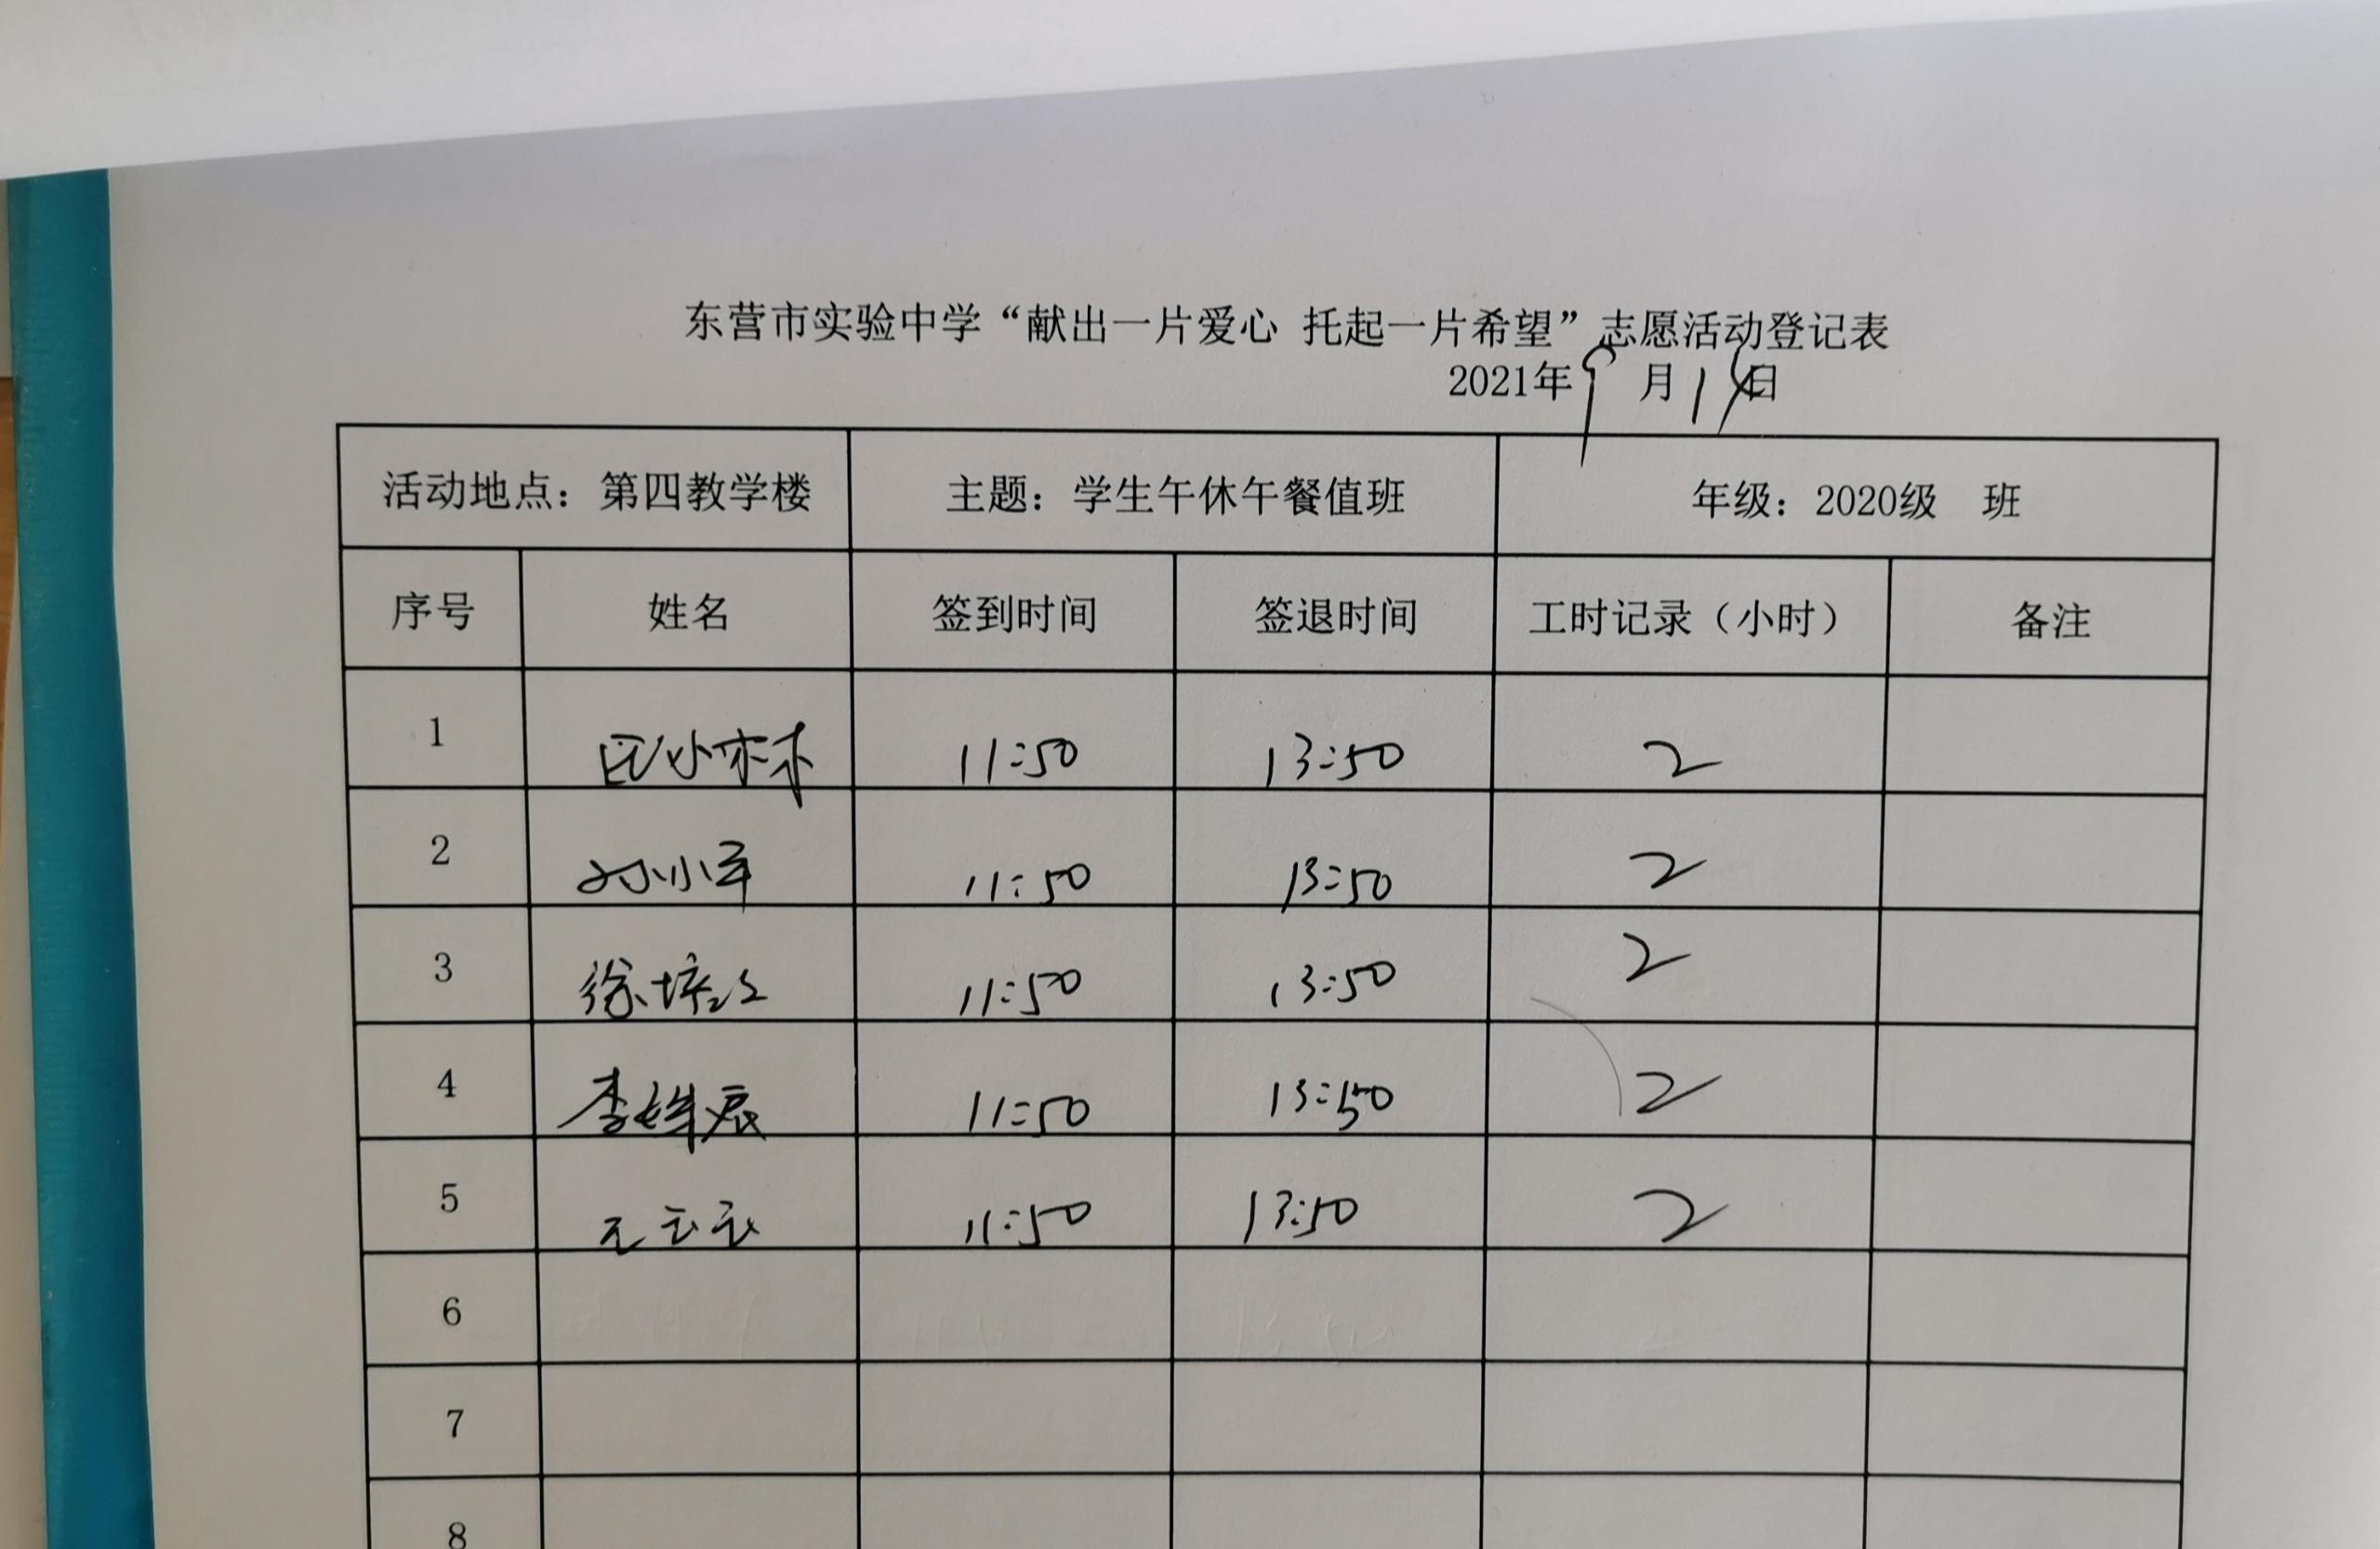 东营市实验中学“献出一片爱心 托起一片希望”志愿活动登记表
2021年9月14日
活动地点：第四教学楼 主题：学生午休午餐值班 年级：2020级 班
序号 姓名 签到时间 签退时间 工时记录（小时） 备注
1 11:50 13:50 2
2 孙小军 11:50 13:50 2
3 徐培 11:50 13:50 2
4 李 11:50 13:50 2
5 11:50 13:50 2
6
7
8